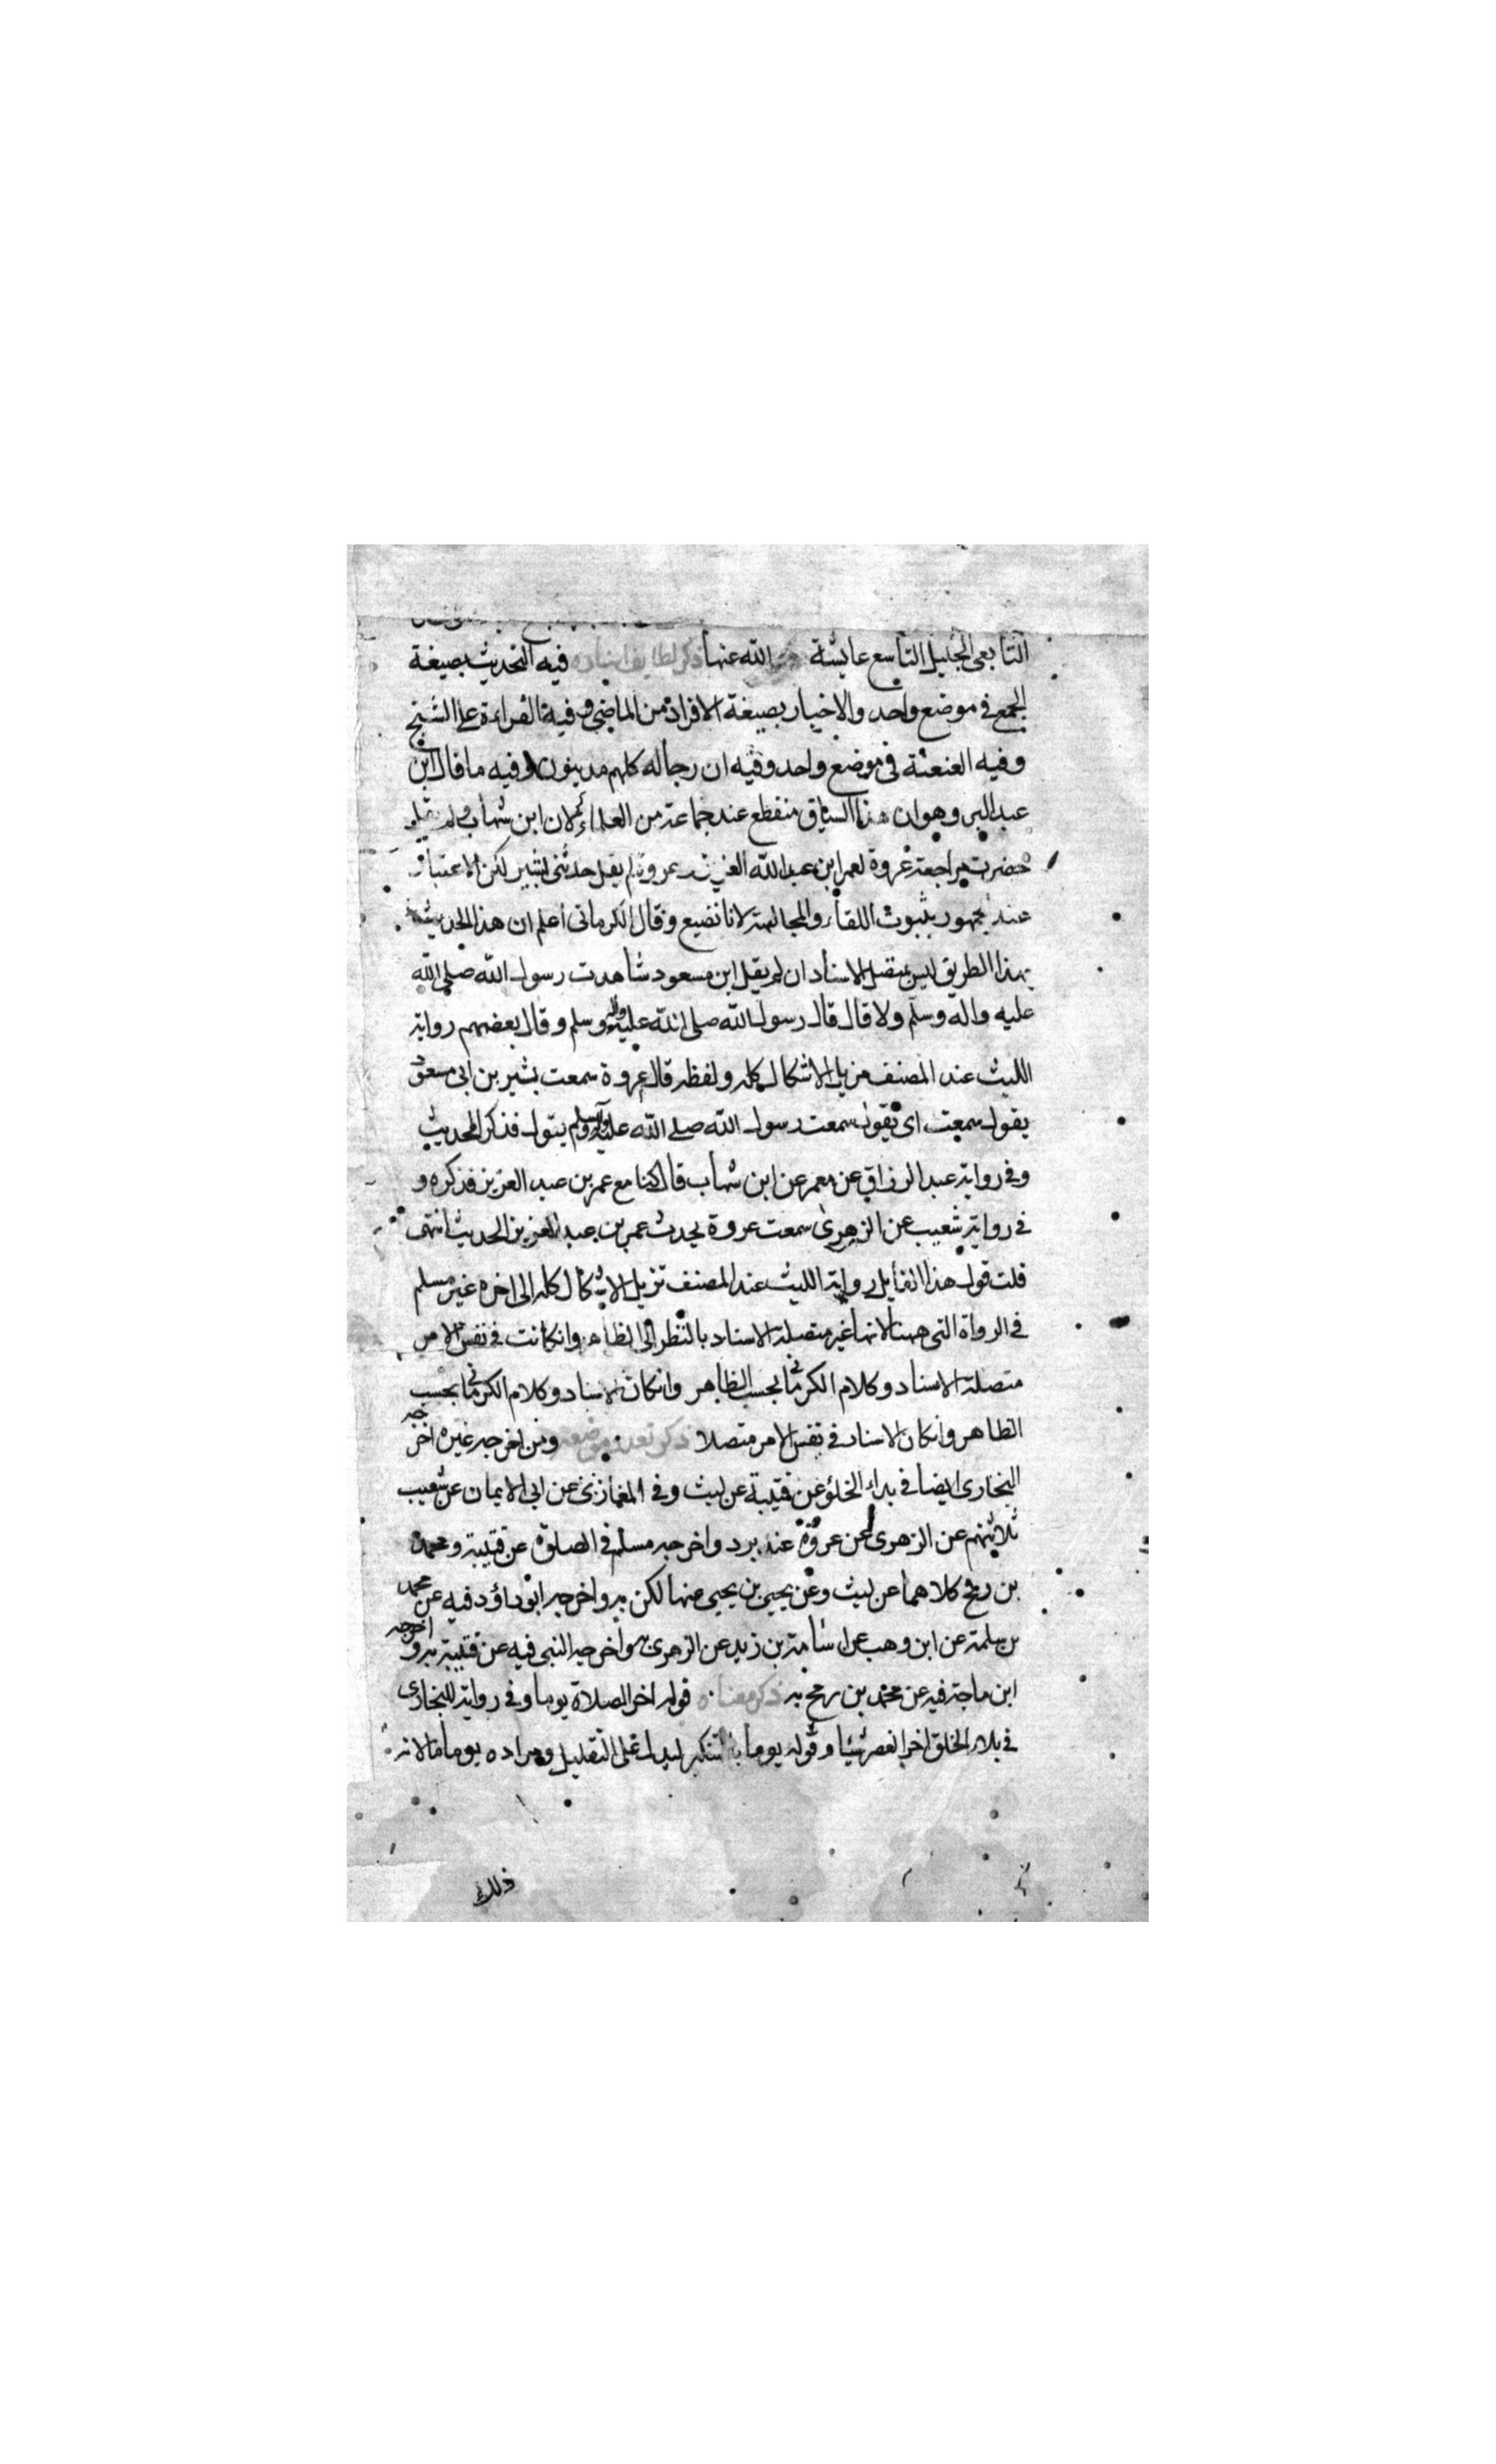 التابعى الجليل التاسع عايشة رضى الله عنها ذكر لطايف اسناده فيه التحديث بصيغة
الجمع فى موضع واحد والاخبار بصيغة الافراد من الماضى وفيه القراءة على الشيخ
وفيه العنعنة فى موضع واحد وفيه ان رجاله كلهم مدينون وفيه ما قال ابن
عبد البر وهو ان هذا السياق منقطع عند جماعة من العلماء لان ابن شهاب لم يقل
حضرت مراجعة عروة لعمر ابن عبد الله العزيز وعروة لم يقل حدثنى بشير لكن الاعتبار
عند الجمهور بثبوت اللقاء والمجالسة لانا نضيع وقال الكرمانى اعلم ان هذا الحديث
بهذا الطريق ليس بمتصل الاسناد ان لم يقل ابن مسعود شاهدت رسول الله صلى الله
عليه واله وسلم ولا قال قال رسول الله صلى الله عليه واله وسلم وقال بعضهم رواية
الليث عند المصنف مزيل الاشكال كله ولفظه قال عروة سمعت بشير بن ابى مسعود
يقول سمعت ابى يقول سمعت رسول الله صلى الله عليه وآله وسلم يقول فذكر الحديث
وفى رواية عبد الرزاق عن معمر عن ابن شهاب قال كنا مع عمر بن عبد العزيز فذكره و
فى رواية شعيب عن الزهرى سمعت عروة يحدث عمر بن عبد العزيز الحديث انتهى
قلت قول هذا القايل رواية الليث عند المصنف تزيل الاشكال كله الى اخره غير مسلم
فى الرواة التى ههنا لانها غير متصلة الاسناد بالنظر الى الظاهر وانكانت فى نفس الامر
متصلة الاسناد وكلام الكرمانى بحسب الظاهر وانكان الاسناد وكلام الكرمانى بحسب
الظاهر وانكان الاسناد فى نفس الامر متصلا ذكر تعدد موضعه ومن اخرجه غيره اخرجه
البخارى ايضا فى بداء الخلق عن قتيبة عن ليث وفى المغازى عن ابى الايمان عن شعيب
ثلاثتهم عن الزهرى عن عروة عنه برد واخرجه مسلم فى الصلوة عن قتيبة ومحمد
بن رمح كلاهما عن ليث وعن يحيى بن يحيى منها لكن به واخرجه ابو داؤد فيه عن محمد
بن سلمة عن ابن وهب عن اسامة بن زيد عن الزهرى به واخرجه النبى فيه عن قتيبة به و اخرجه
ابن ماجة فيه عن محمد بن رمح به ذكر معناه قوله اخر الصلاة يوما وفى رواية للبخارى
فى بلاء الخلق اخر العصر شيا وقوله يوما بالتنكير ليدل على التقليل ومراده يوما ما لانه
ذلك